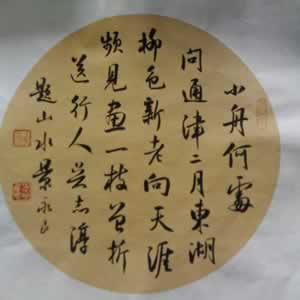 小舟何處
問通津二月東湖
柳色新老向天涯
頻見畫一枝曾折
送行人吴志淳
題山水景永良